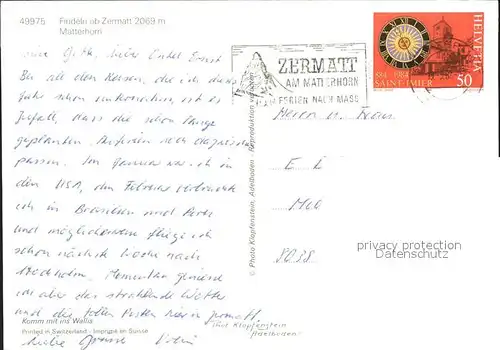 49975 Findeln ob Zermatt 2069 m
Matterhorn
HELVETIA
884-1984
SAINT-IMIER
50
ZERMATT
AM MATTERHORN
FERIEN NACH MASS
Onkel Ernst
Bei all den Reisen, die ich dieses
Jahr schon unternehme, ist es
Zufall, dass die schon lange
geplanten
passen. Im Januar war ich in
den USA, den Februar verbrachte
ich in Brasilien und Peru
und möglicherweise fliege ich
schon nächste Woche nach
Stockholm. Momentan geniesse
ich aber das strahlende Wetter
und die tollen Pisten hier in Zermatt
Liebe Grüsse
Herrn u. Frau
E L
Mod
8038
privacy protection
Datenschutz
© Photo Klopfenstein, Adelboden - Reproduktion verboten
Komm mit ins Wallis
Printed in Switzerland - Imprimé en Suisse
Klopfenstein
Adelboden